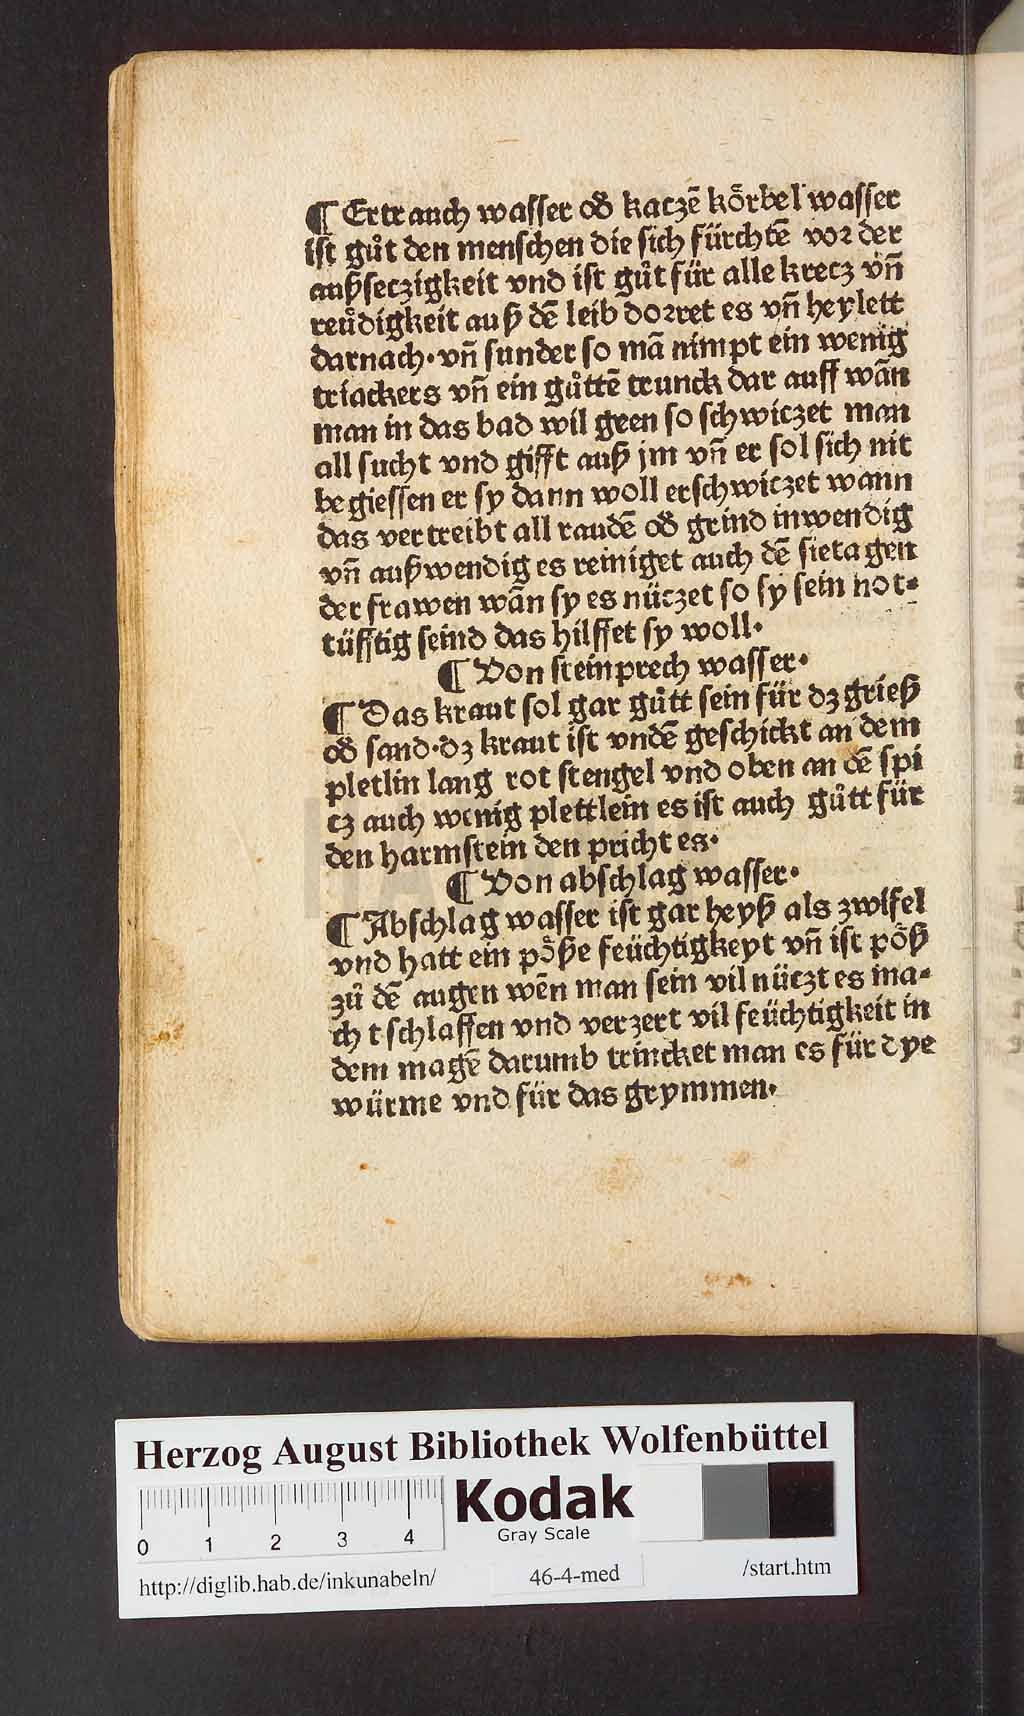 ¶ Ertrauch wasser od̕ kaczē koͤrbel wasser
ist guͦt den menschen die sich fürchtē vor der
außseczigkeit vnd ist guͦt für alle krecz vn̄
reuͤdigkeit auß dē leib dorret es vn̄ heylett
darnach· vn̄ sunder so mā nimpt ein wenig
triackers vn̄ ein guͦttē trunck dar auff wān
man in das bad wil geen so schwiczet man
all sucht vnd gifft auß jm vn̄ er sol sich nit
be giessen er sy dann woll erschwiczet wann
das vertreibt all raudē od̕ grind inwendig
vn̄ außwendig es reiniget auch dē sietagen
der frawen wān sy es nüczet so sy sein not⸗
tüfftig seind das hilffet sy woll·
¶ Von steinprech wasser·
¶ Das kraut sol gar guͦtt sein für dz grieß
od̕ sand·dz kraut ist vndē geschickt an dem
pletlin lang rot stengel vnd oben an dē spi
cz auch wenig plettlein es ist auch guͦtt für
den harmstein den pricht es·
¶ Von abschlag wasser·
¶ Abschlag wasser ist gar heyß als zwifel
vnd hatt ein poͤße feüchtigkeyt vn̄ ist poͤß
zuͦ dē augen wēn man sein vil nüczt es ma⸗
ch t schlaffen vnd verzert vil feüchtigkeit in
dem magē darumb trincket man es für dye
würme vnd für das grymmen·
Herzog August Bibliothek Wolfenbüttel
Kodak
Gray Scale
0 1 2 3 4
http://diglib.hab.de/inkunabeln/ 46-4-med /start.htm